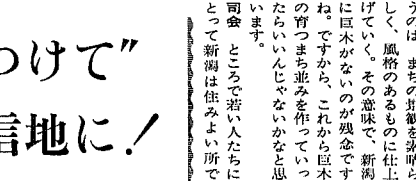 うのは、まちの景観を素晴ら
しく、風格のあるものに仕上
げていく。その意味で、新潟
に巨木がないのが残念です
ね。ですから、これから巨木
の育つまち並みを作っていっ
たらいいんじゃないかなと思
います。
司会　ところで若い人たちに
とって新潟は住みよい所で
つけて”
信地に！